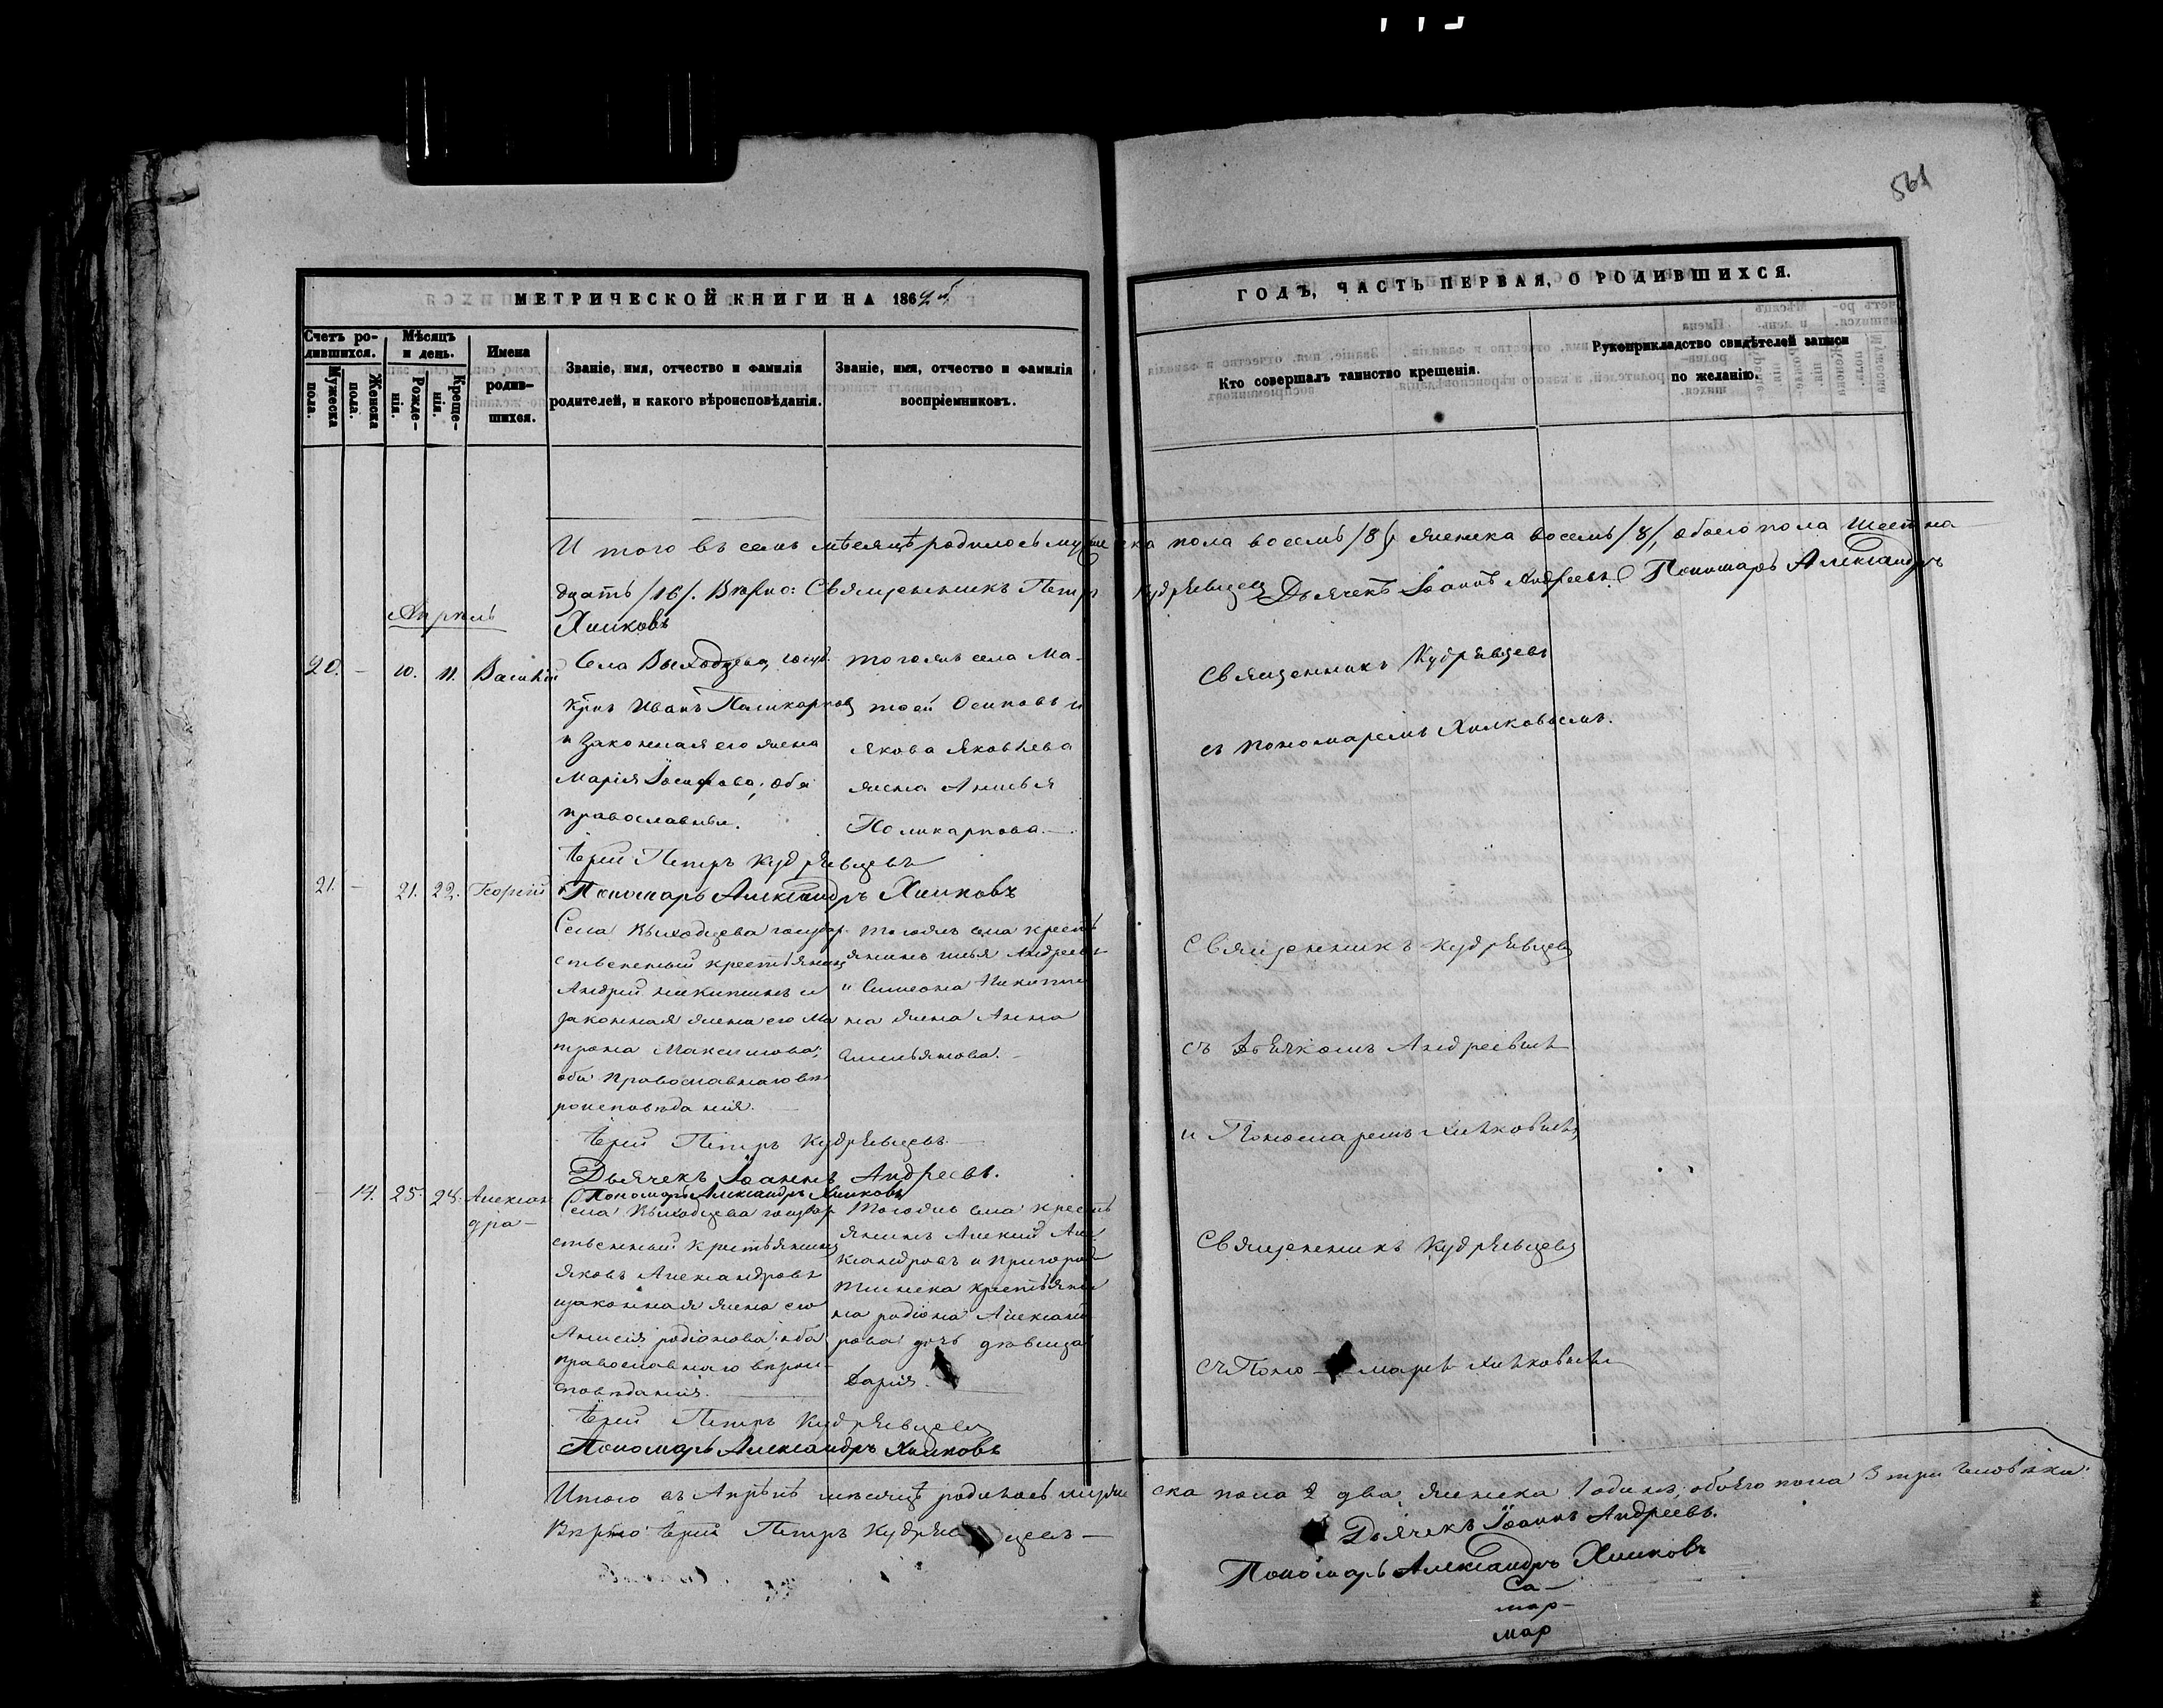 561
МЕТРИЧЕСКОЙ КНИГИ НА 186
ГОДЪ, ЧАСТЬ ПЕРВАЯ, О РОДИВШИХСЯ.
Счетъ ро-
дившихся.
Мужеска
пола.
Женска
пола.
Мѣсяцъ
и день.
Рожде-
нія.
Креще-
нія.
Имена
родив-
шихся.
Званіе, имя, отчество и фамилія
родителей, и какого вѣроисповѣданія.
Званіе, имя, отчество и фамилія
воспріемниковъ.
Кто совершалъ таинство крещенія.
Рукоприкладство свидѣтелей записи
по желанію.
И того въ семъ мѣсяцѣ родилось мужеска пола восемь /8/, женска восемь /8/, обоего пола шестна
дцать /16/. Вѣрно: Священникъ Петръ Кудрявцевъ Дьячекъ Іоаннъ Андреевъ Пономарь Александръ
Хилковъ
Апрѣль
20. — 10. 11. Василій
Села Выходцева, госуд.
крнъ Иванъ Поликарповъ
и законная его жена
Марія Іосифова; оба
православные.
тогожъ села Ма-
тоей Осиповъ и
Якова Яковлева
жена Анисья
Поликарпова. —
Священникъ Кудрявцевъ
съ пономаремъ Хилковымъ.
Іерей Петръ Кудрявцевъ
Пономарь Александръ Хилковъ
21. — 21. 22. Георгій
Села Выходцева государ
ственный крестьянинъ
Андрей Никитинъ и
законная жена его Ма
трона Максимова;
оба православнаго вѣ
роисповѣданія.
Тогожъ села кресть
янинъ Илья Андреевъ
и Симеона Никити
на жена Анна
Емельянова. —
Священникъ Кудрявцевъ
съ Дьячкомъ Андреевымъ
и Пономаремъ Хилковымъ
Іерей Петръ Кудрявцевъ. —
Дьячекъ Іоаннъ Андреевъ.
Пономарь Александръ Хилковъ
— 14. 25. 28. Алексан
дра —
Села Выходцева государ
ственный крестьянинъ
Яковъ Александровъ
и законная жена его
Анисія Родіонова; оба
православнаго вѣрои-
сповѣданія.
Тогожъ села кресть
янинъ Алексѣй Але
ксандровъ и Пригород
крестьяни
на Родіона Александ
рова дочь дѣвица
Дарія.
Священникъ Кудрявцевъ
съ Поно — маремъ Хилковымъ
Іерей Петръ Кудрявцевъ
Пономарь Александръ Хилковъ
Итого въ Апрѣлѣ мѣсяцѣ родилось мужеска пола 2 два, женска 1 одинъ, обоего пола 3 три человѣка.
Вѣрно: Іерей Петръ Кудрявцевъ —
Дьячекъ Іоаннъ Андреевъ.
Пономарь Александръ Хилковъ
Са-
мар-
мар